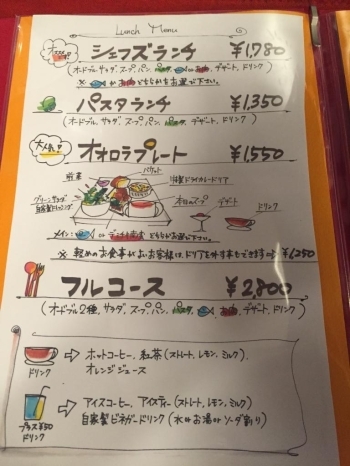 Lunch Menu
シェフズランチ ¥1,780
(オードブル、サラダ、スープ、パン、パスタ、 or お肉、デザート、ドリンク)
※ or お肉どちらかをお選び下さい。
パスタランチ ¥1,350
(オードブル、サラダ、スープ、パン、パスタ、デザート、ドリンク)
大人気!
オオロラプレート ¥1,550
前菜
バケット
特製ドライカレードリア
グリーンサラダ
自家製ドレッシング
本日のスープ
デザート
ドリンク
メイン: or どちらかお選び下さい。
※ 軽めのお食事がよいお客様は、ドリアを外す事もできます⇒¥1,250
フルコース ¥2,800
(オードブル2種、サラダ、スープ、パン、パスタ、 お肉、デザート、ドリンク)
ドリンク
⇒ ホットコーヒー、紅茶(ストレート、レモン、ミルク)
オレンジジュース
プラス¥50
ドリンク
⇒ アイスコーヒー、アイスティー(ストレート、レモン、ミルク)
自家製ビネガードリンク(水orお湯orソーダ割り)